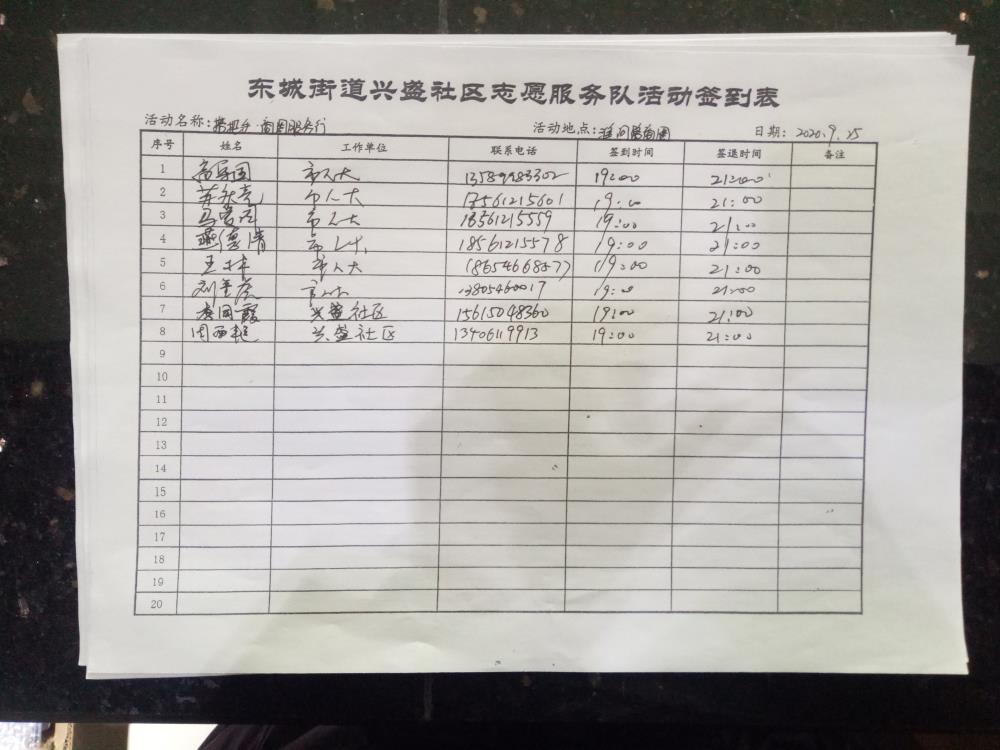 东城街道兴盛社区志愿服务队活动签到表
活动名称: 商圈服务行 活动地点: 商圈 日期: 2020.9.25
序号 姓名 工作单位 联系电话 签到时间 签退时间 备注
1 市人大 13589983302 19:00 21:00
2 市人大 18561215601 19:00 21:00
3 市人大 18561215559 19:00 21:00
4 燕德清 市人大 18561215578 19:00 21:00
5 王林 市人大 18654668577 19:00 21:00
6 刘金虎 13805460017 19:00 21:00
7 李国霞 兴盛社区 15615048360 19:00 21:00
8 周西艳 兴盛社区 13406119913 19:00 21:00
9
10
11
12
13
14
15
16
17
18
19
20